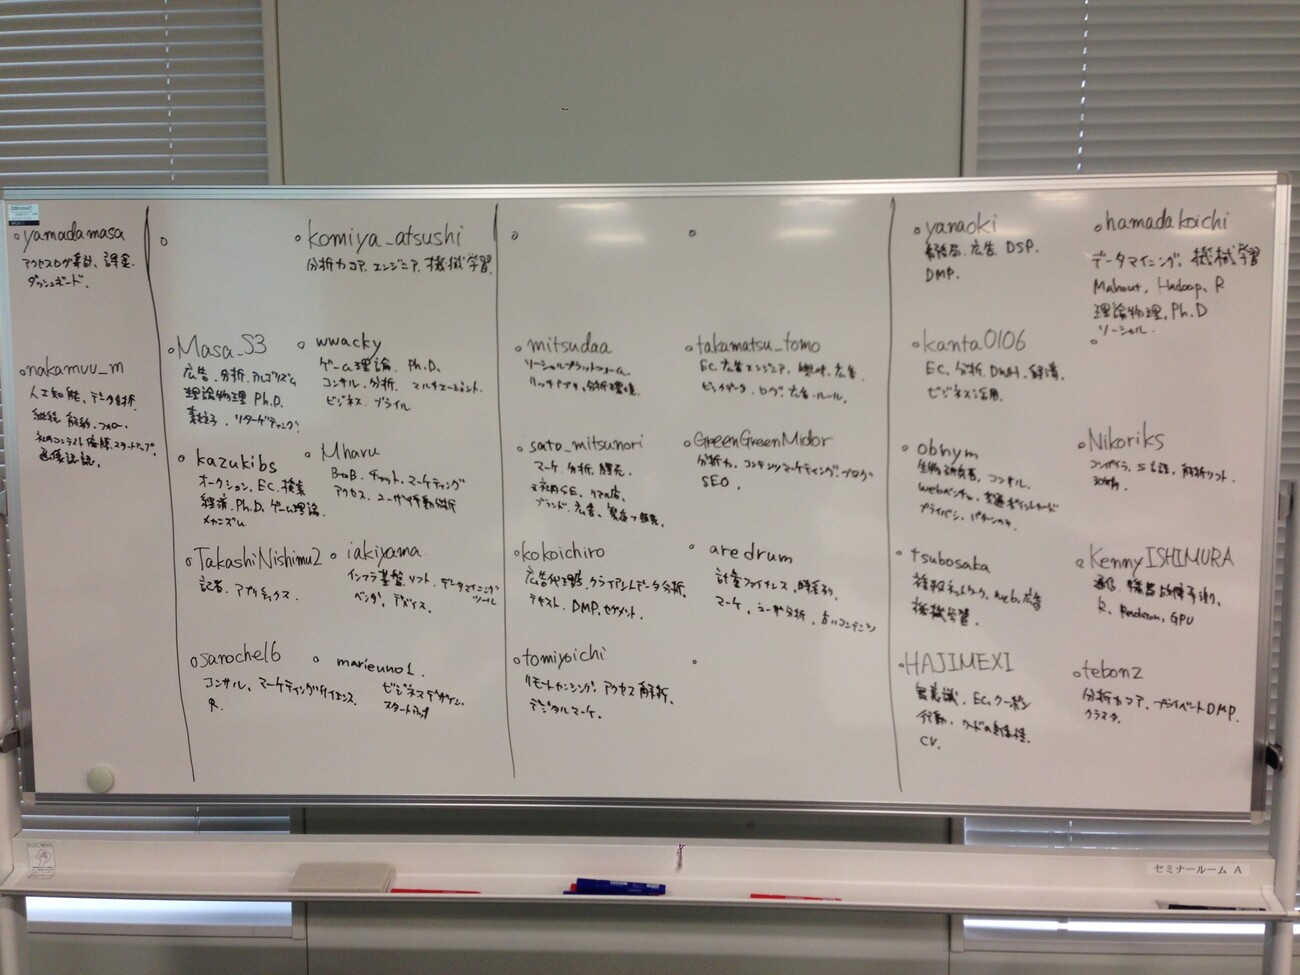 yamadamasa
アクセスログ集計、課金、
ダッシュボード.
nakamuu_m
人工知能、データ分析.
komiya_atsushi
分析力コア、エンジニア、機械学習
Masa_S3
広告、分析、アルゴリズム
理論物理 Ph.D.
素粒子、リターゲティング
wwacky
ゲーム理論、Ph.D.
コンサル、分析、マルチエージェント.
ビジネス、ブライル
kazukibs
オークション、EC、検索
経済、Ph.D. ゲーム理論.
メカニズム
Mharu
BtoB、チャット、マーケティング
アクセス、ユーザ行動分析
TakashiNishimu2
記者、アナリティクス
iakiyama
インフラ基盤ソフト、データマイニング
ツール
ベンダ、アドバイス.
sanoche16
コンサル、マーケティングサイエンス
R.
marieuno1.
ビジネスデザイン.
スタートアップ
mitsudaa
ソーシャルプラットフォーム
takamatsu_tomo
EC、広告エンジニア、興味、広告.
ビッグデータ、ログ、広告、ルール.
sato_mitsunori
マーケ、分析
GreenGreenMidor
分析力、コンテンツマーケティング、ブログ
SEO.
kokoichiro
広告代理店、クライアントデータ分析、
テキスト、DMP、セグメント.
aredrum
計量ファイナンス、時系列
マーケ、ユーザ分析
tomiyoichi
リモートセンシング、アクセス解析、
デジタルマーケ.
yanaoki
事務局、広告、DSP.
DMP.
hamadakoichi
データマイニング、機械学習
Mahout, Hadoop, R
理論物理, Ph.D
ソーシャル.
kanta0106
EC、分析、DWH、経済.
ビジネス活用.
obnym
Nikoriks
コンパイラ、S言語、解析ソフト
tsubosaka
複雑ネットワーク、web、広告
機械学習.
KennyISHIMURA
R, GPU
HAJIMEXI
無意識、EC、クーポン
行動、ワードの
CV.
tebon2
分析力コア、プライベートDMP.
クラスタ.
セミナールーム A